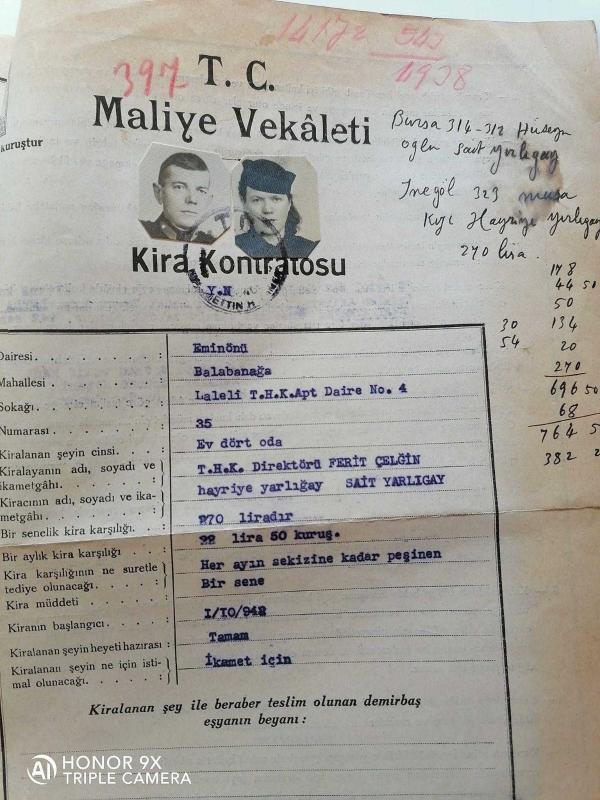 1417e 540
4908
397
T. C.
Maliye Vekâleti
kuruştur
Bursa 314-312 Hüseyin
oğlu Sait Yırlıgay
İnegöl 323 musa
Kızı Hayriye Yırlıgay
270 lira.
Kira Kontratosu
Y.N
178
44 50
50
30 134
54 20
270
696 50
68
764 5
382 2
Dairesi. : Eminönü
Mahallesi : Balabanağa
Sokağı. : Laleli T.H.K.Apt Daire No. 4
Numarası : 35
Kiralanan şeyin cinsi. : Ev dört oda
Kiralayanın adı, soyadı ve ikametgâhı. : T.H.K. Direktörü FERİT ÇELĞİN
Kiracının adı, soyadı ve ikametgâhı. : hayriye yarlığay SAİT YARLIGAY
Bir senelik kira karşılığı. : 270 liradır
Bir aylık kira karşılığı : 22 lira 50 kuruş.
Kira karşılığının ne suretle tediye olunacağı. : Her ayın sekizine kadar peşinen
Kira müddeti : Bir sene
Kiranın başlangıcı : I/IO/942
Kiralanan şeyin heyeti hazırası : Tamam
Kiralanan şeyin ne için istimal olunacağı. : İkamet için
Kiralanan şey ile beraber teslim olunan demirbaş
eşyanın beyanı :
HONOR 9X
TRIPLE CAMERA